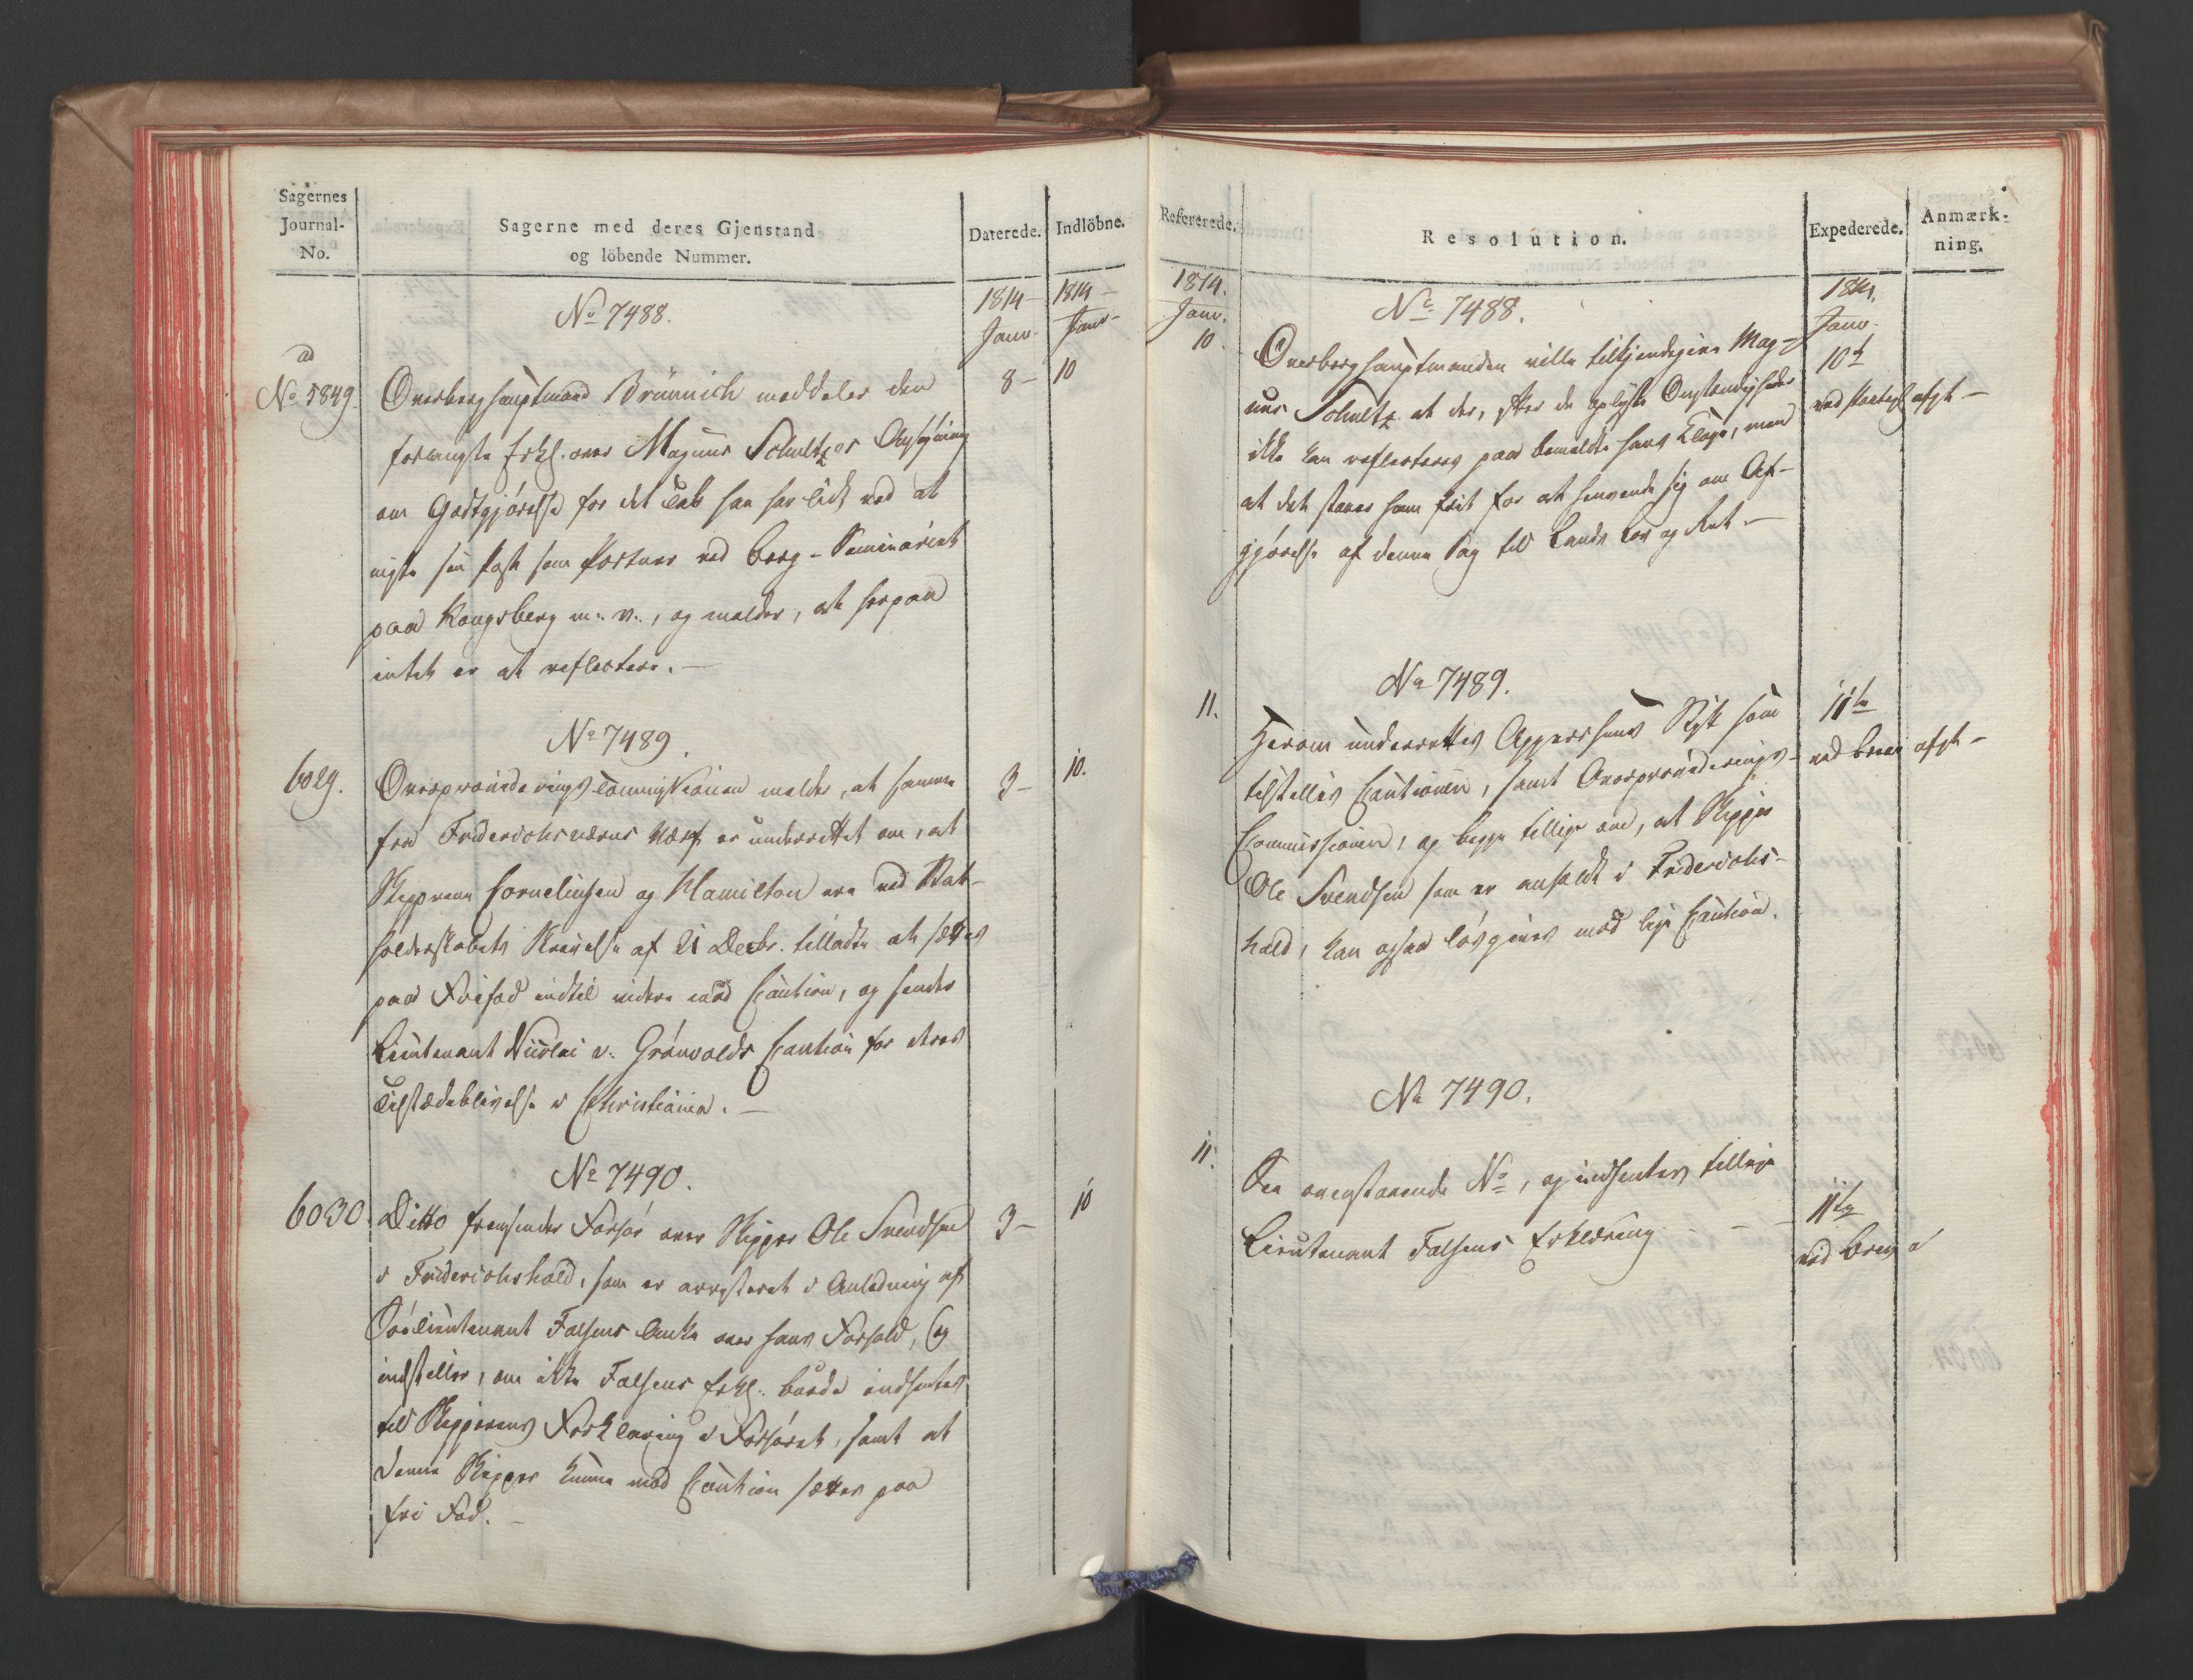 Sagernes
Journal-
No.
Sagerne med deres Gjenstand
og löbende Nummer.
Daterede.
Indlöbne.
1814 –
Janv.
1814 –
Janv –
No 7488.
ad
No 5849.
Overberghauptmand Brünnich meddeler den
forlangte Erkl. over Magnus Schultzes Ansøgning
om Godtgjørelse for det Tab han har lidt ved at
miste sin Post som Portner ved Berg-Seminariet
paa Kongsberg m. v., og melder, at herpaa
intet er at reflectere. –
8 –
10
No 7489.
6029.
Overprovideringscommissionen melder, at samme
fra Friderichsværns Værft er underrettet om, at
Skipperne Cornelinsen og Hamilton ere ved Stat-
holderskabets Skrivelse af 21 Decbr. tilladte at sættes
paa Frifod indtil videre mod Caution, og sender
Lieutenant Nicolai v. Grønvolds Caution for deres
Tilstædeblivelse i Christiania. –
3 –
10.
No 7490.
6030.
Ditto fremsender Forhør over Skipper Ole Svendsen
i Friderichshald, som er arresteret i Anledning af
Søelieutenant Falsens Anke over hans Forhold, og
indstiller, om ikke Falsens Erkl. burde indhentes
til Skipperens Forklaring i Forhøret, samt at
denne Skipper kunne mod Caution sættes paa
fri Fod. –
3 –
10
Refererede.
Resolution.
Expederede.
Anmærk-
ning.
1814.
Janv.
10
No 7488.
Overberghauptmanden ville tilkjendegive Mag-
nus Schultz at der, efter de oplyste Omstændigheder
ikke kan reflecteres paa bemeldte hans Klage, men
at det staaer ham frit for at henvende sig om Af-
gjørelse af denne Sag til Lands Lov og Ret. –
1814.
Janv.
10de
afgt –
11.
No 7489.
Herom underrettes som
tilstilles Cautionen, samt Overproviderings-
Commissionen, og begge tillige om, at Skipper
Ole Svendsen som er anholdt i Friderichs-
hald, kan ogsaa løsgives mod lige Caution.
11te
ved Brev
afgt –
11.
No 7490.
See ovenstaaende No, og indhentes tillige
Lieutenant Falsens Erklæring – –
11te
ved Brev